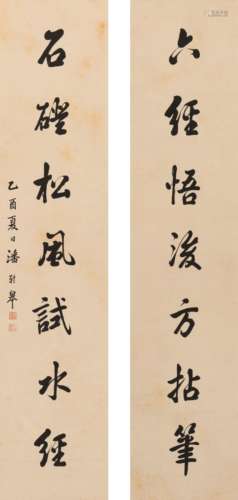 六經悟後方拈筆
石磴松風試水經
乙酉夏日潘齡皋